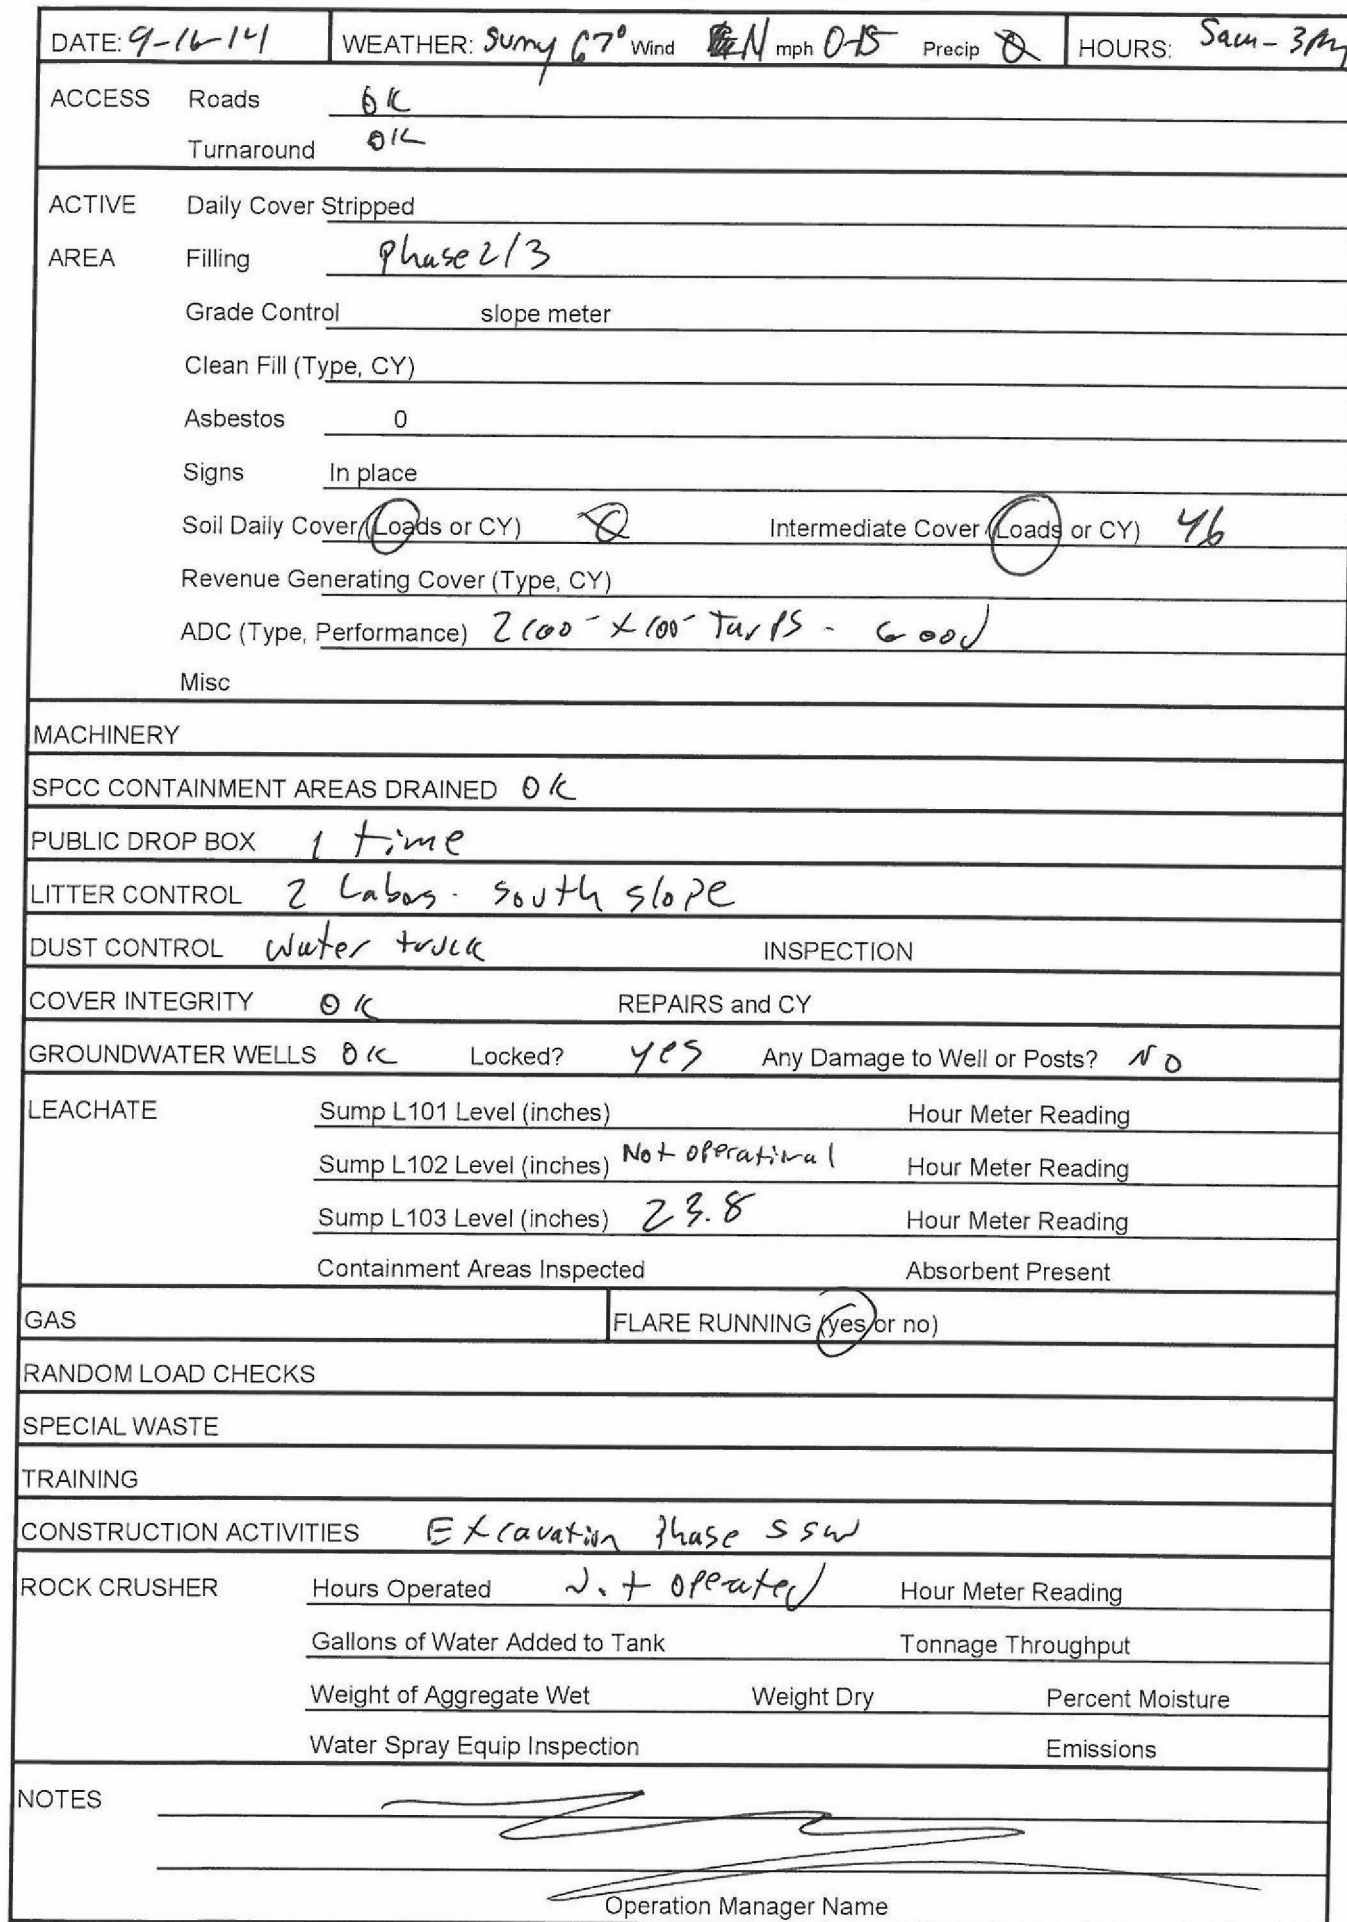 DATE: 9-16-14 WEATHER: Sunny 67° Wind N mph 0-15 Precip 0 HOURS: 5am - 3pm
ACCESS Roads OK
Turnaround OK
ACTIVE Daily Cover Stripped
AREA Filling Phase 2/3
Grade Control slope meter
Clean Fill (Type, CY)
Asbestos 0
Signs In place
Soil Daily Cover (Loads or CY) 0 Intermediate Cover (Loads or CY) 46
Revenue Generating Cover (Type, CY)
ADC (Type, Performance) 2 100- x 100- Tarps - Good
Misc
MACHINERY
SPCC CONTAINMENT AREAS DRAINED OK
PUBLIC DROP BOX 1 time
LITTER CONTROL 2 Labors. south slope
DUST CONTROL water truck INSPECTION
COVER INTEGRITY OK REPAIRS and CY
GROUNDWATER WELLS OK Locked? yes Any Damage to Well or Posts? NO
LEACHATE Sump L101 Level (inches) Hour Meter Reading
Sump L102 Level (inches) Not operational Hour Meter Reading
Sump L103 Level (inches) 23.8 Hour Meter Reading
Containment Areas Inspected Absorbent Present
GAS FLARE RUNNING (yes or no)
RANDOM LOAD CHECKS
SPECIAL WASTE
TRAINING
CONSTRUCTION ACTIVITIES Excavation Phase 5 SW
ROCK CRUSHER Hours Operated Not operated Hour Meter Reading
Gallons of Water Added to Tank Tonnage Throughput
Weight of Aggregate Wet Weight Dry Percent Moisture
Water Spray Equip Inspection Emissions
NOTES
Operation Manager Name